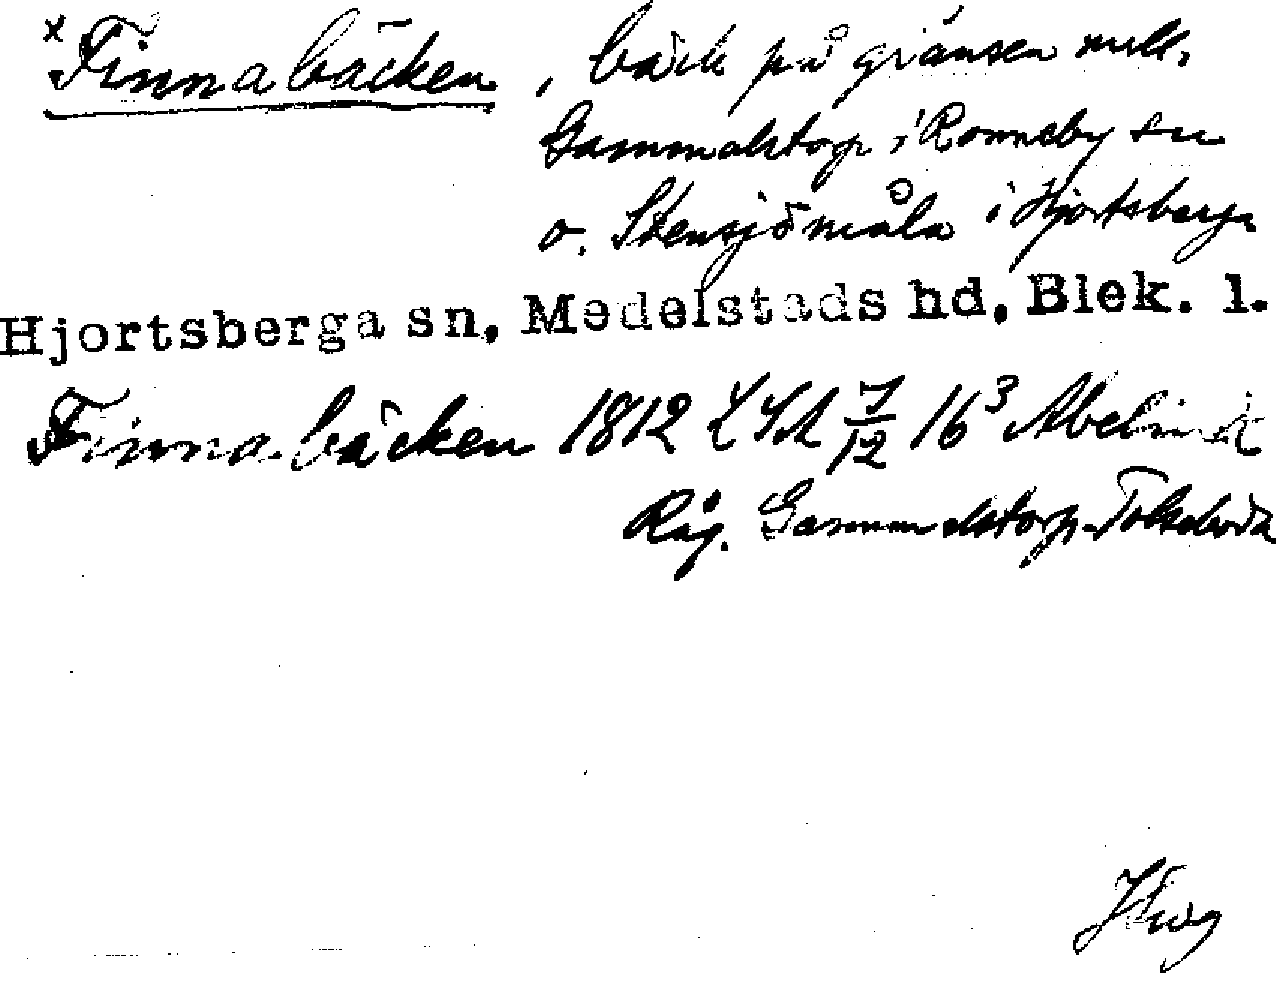 x Finnabäcken, bäck på gränsen mell.
Gammalstorp i Ronneby sn
o. Stensjömåla i Hjortsberga
Hjortsberga sn, Medelstads hd, Blek. l.
Finnabäcken 1812 7/12 16³ Abelin
Råg. Gammalstorp-Tolseboda